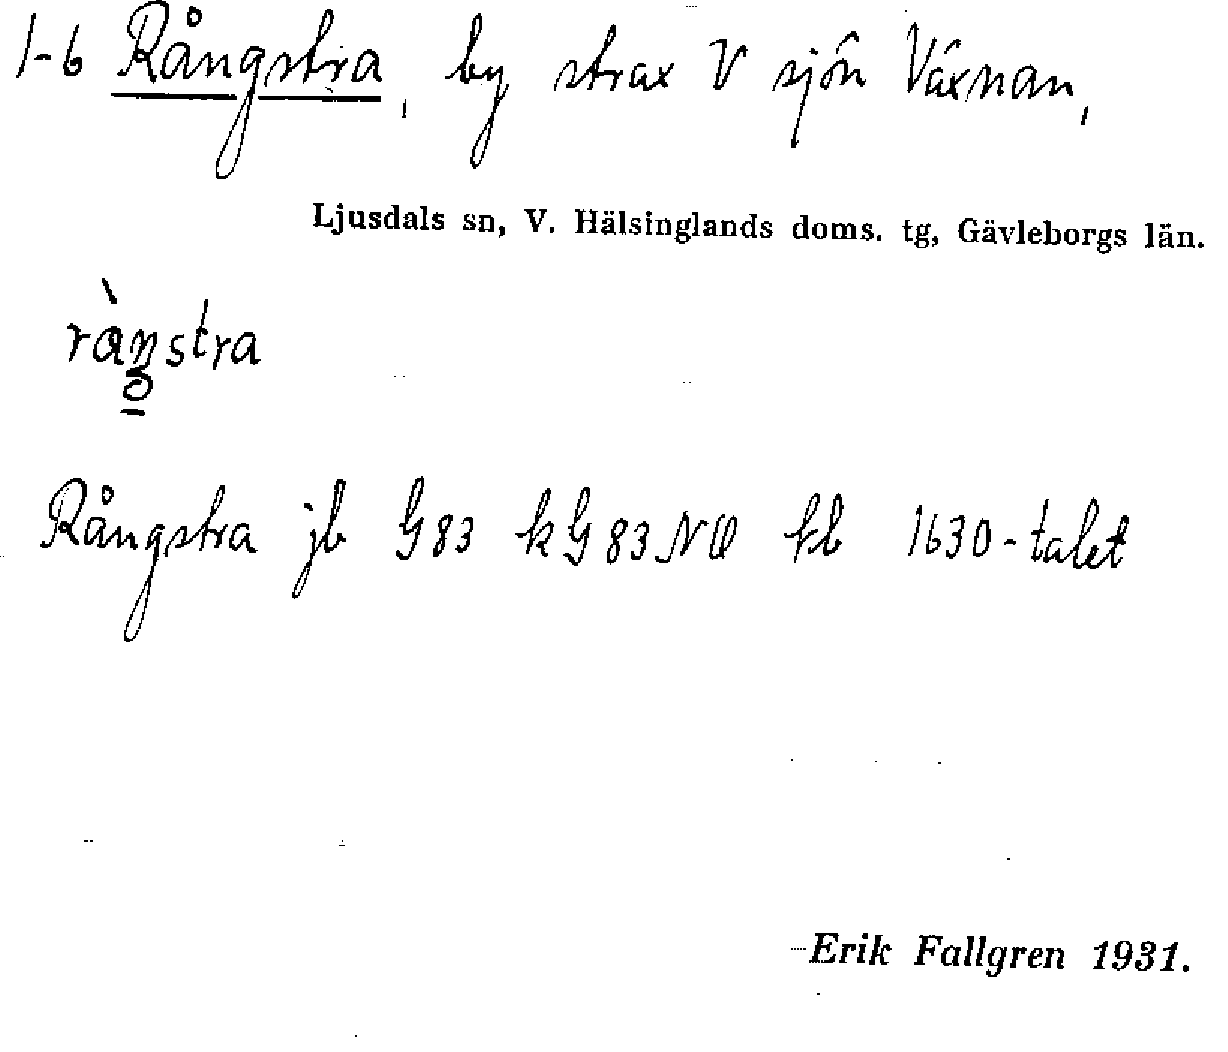 1-6 Rångstra, by strax V sjön Växnan,
Ljusdals sn, V. Hälsinglands doms. tg, Gävleborgs län.
ràŋstra
o
Rångstra jb G 83 k G 83 NO kb 1630-talet
Erik Fallgren 1931.